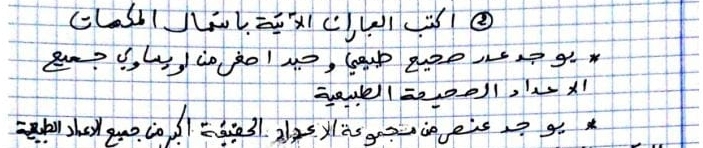 ② اكتب العبارات الآتية باستعمال المكممات
* يوجد عدد صحيح طبيعي وحيد اصغر من او يساوي جميع
الاعداد الصحيحة الطبيعية
* يوجد عنصر من مجموعة الاعداد الحقيقية اكبر من جميع الاعداد الطبيعية